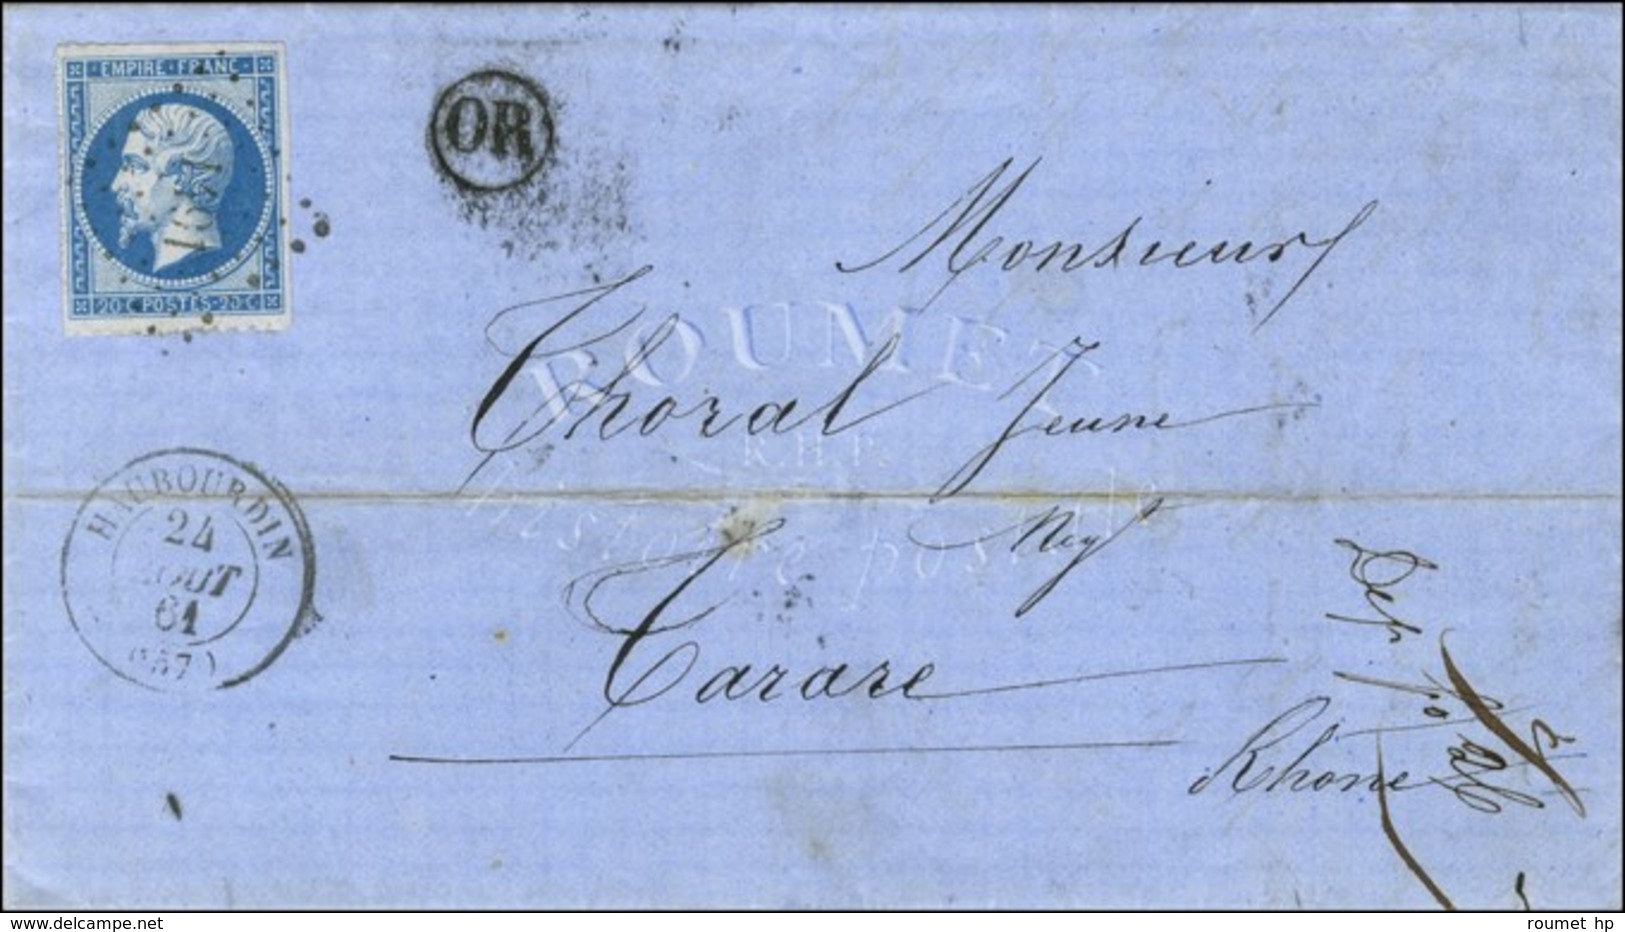 EMPIRE FRANC
20 C POSTES 20 C
OR
Monsieur
Thoral Jeune
Negt
Tarare
Rhone
HAUBOURDIN
24
AOUT
61
(57)
ROUMET
R.H.P.
histoire postale
www.delcampe.net
roumet hp